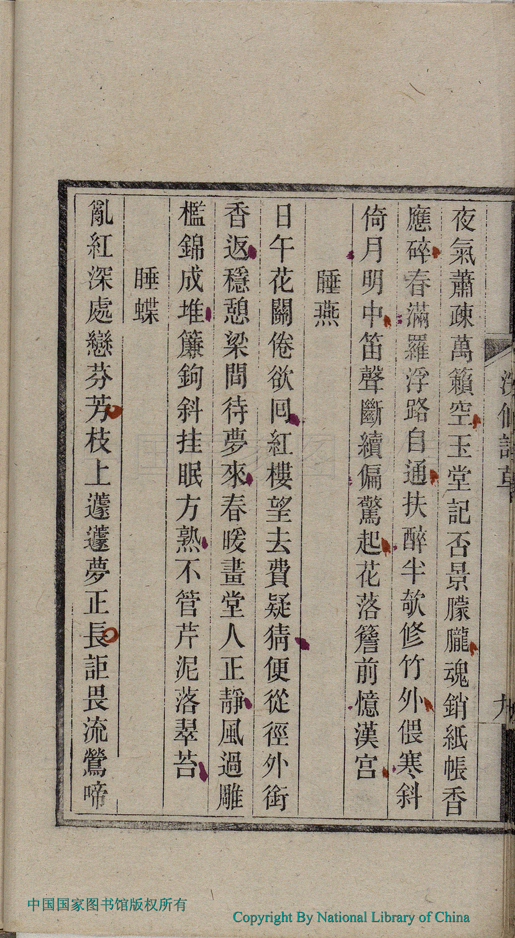 夜氣蕭疎萬籟空玉堂記否景朦朧魂銷紙帳香
應碎春滿羅浮路自通扶醉半欹修竹外偎寒斜
倚月明中笛聲斷續偏驚起花落簷前憶漢宮
睡燕
日午花關倦欲回紅樓望去費疑猜便從徑外銜
香返穩憩梁間待夢來春暖畫堂人正靜風過雕
檻錦成堆簾鉤斜挂眠方熟不管芹泥落翠苔
睡蝶
亂紅深處戀芬芳枝上蘧蘧夢正長詎畏流鶯啼
中国国家图书馆版权所有
Copyright By National Library of China